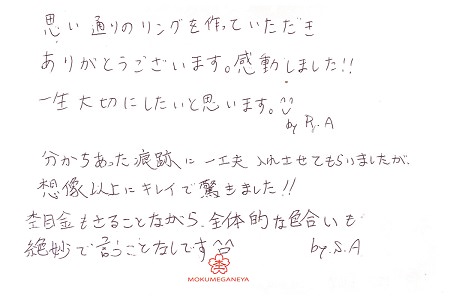 思い通りのリングを作っていただき
ありがとうございます。感動しました!!
一生大切にしたいと思います。^^
by R.A
分かちあった痕跡に一工夫 入れさせてもらいましたが、
想像以上にキレイで驚きました!!
杢目金もさることながら、全体的な色合いも
絶妙で言うことなしです^^
by.S.A
MOKUMEGANEYA